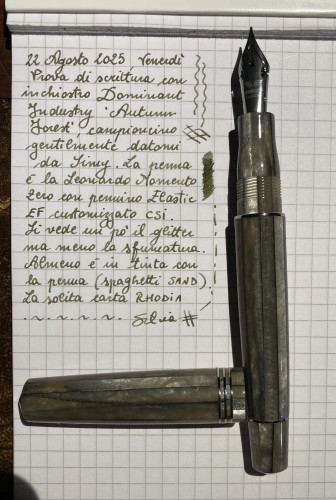 22 Agosto 2025 Venerdì
Prova di scrittura con
inchiostro Dominant
Industry "Autumn
Forest", campioncino
gentilmente datomi
da Siney. La penna
è la Leonardo Momento
Zero con pennino Elastic
EF customizzato CSI.
Si vede un pò il glitter
ma meno la sfumatura.
Almeno è in tinta con
la penna (spaghetti SAND).
La solita carta RHODIA
Silvia #